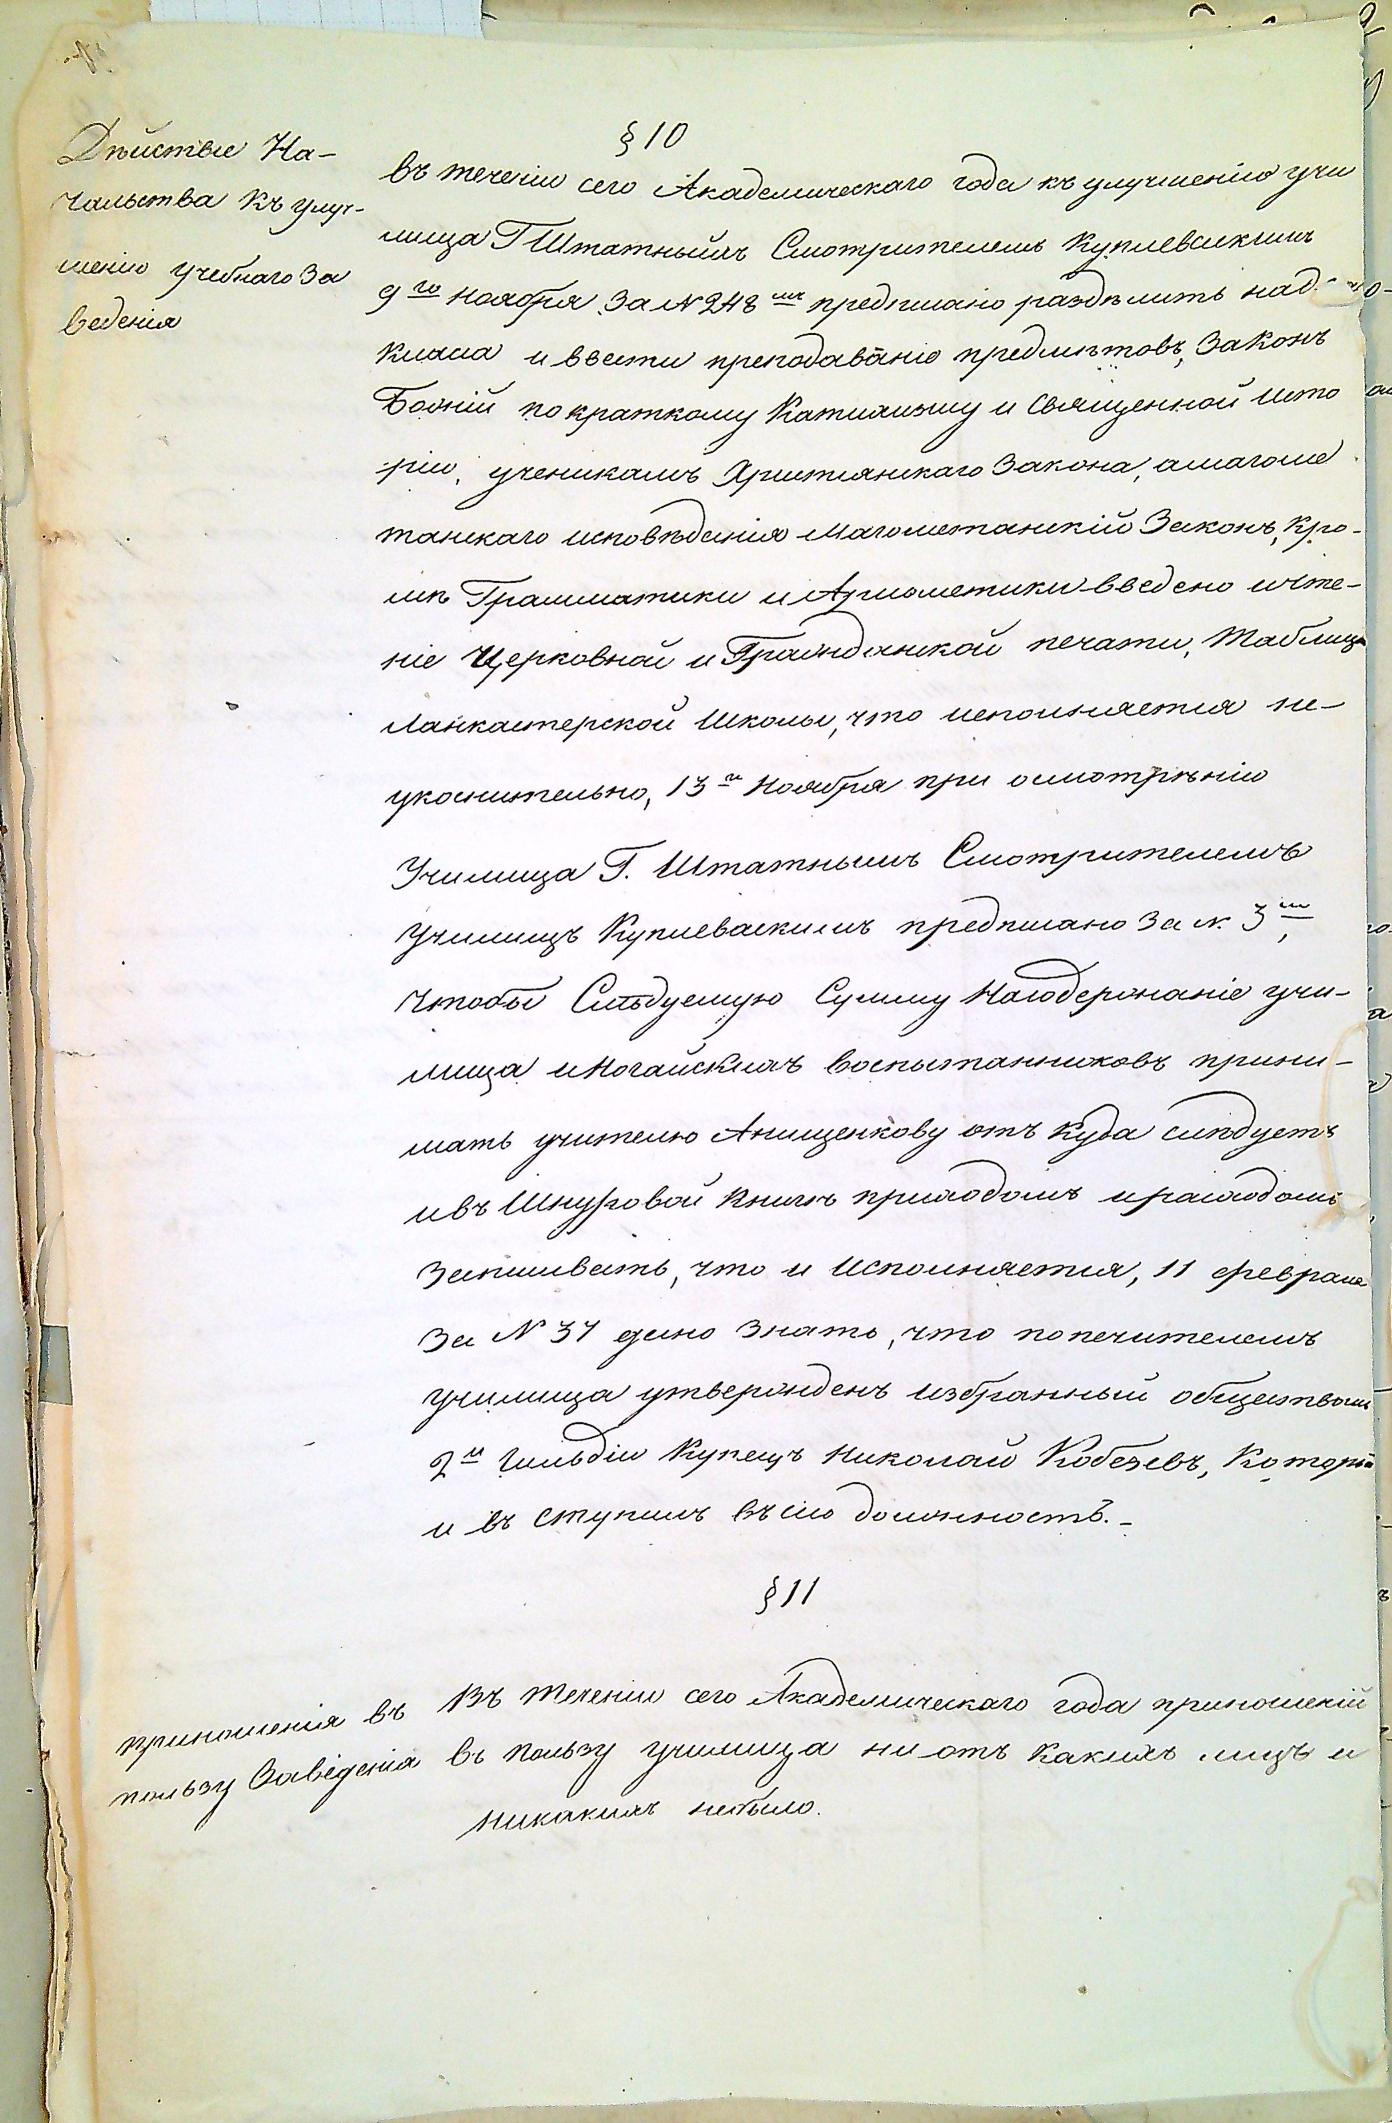 § 10
Дѣйствіе На-
чальства къ улуч-
шенію учебнаго За
веденія
въ теченіи сего Академическаго года къ улучшенію учи
лища Г Штатнымъ Смотрителемъ Куплевскимъ
9го ноября За N 248мъ предписано раздѣлить над
класа и ввести преподаваніе предмѣтовъ, Законъ
Божій по краткому Катихизму и Священной исто
ріи, ученикамъ Христіянскаго Закона, а магоме
танскаго исповѣданія Магометанскій Законъ, Кро-
мѣ Грамматики и Арифметики введено и чте-
ніе Церковной и Гражданской печати, Таблицъ
Ланкастерской Школы, что исполняется не-
укоснительно, 13го Ноября при осмотрѣніи
Училища Г. Штатнымъ Смотрителемъ
Училищъ Куплеваскимъ предписано За N. 3мъ,
Чтобы Слѣдуемую Сумму На содержаніе учи-
лища и Ногайскихъ воспытанниковъ прини-
мать учителю Анищенкову отъ куда слѣдуетъ
и въ Шнуровой Книгѣ приходомъ и расходомъ
Записывать, что и Исполняется, 11 февраля
За N 37 дано Знать, что попечителемъ
училища утвержденъ избранный обществомъ
2й Гильдіи Купецъ Николай Кобезевъ, Который
и въ ступилъ въ сію должность.-
§ 11
приношенія въ
пользу Заведенія
Въ теченіи сего Академическаго года приношеній
въ пользу училища ни отъ какихъ лицъ и
никакихъ небыло.